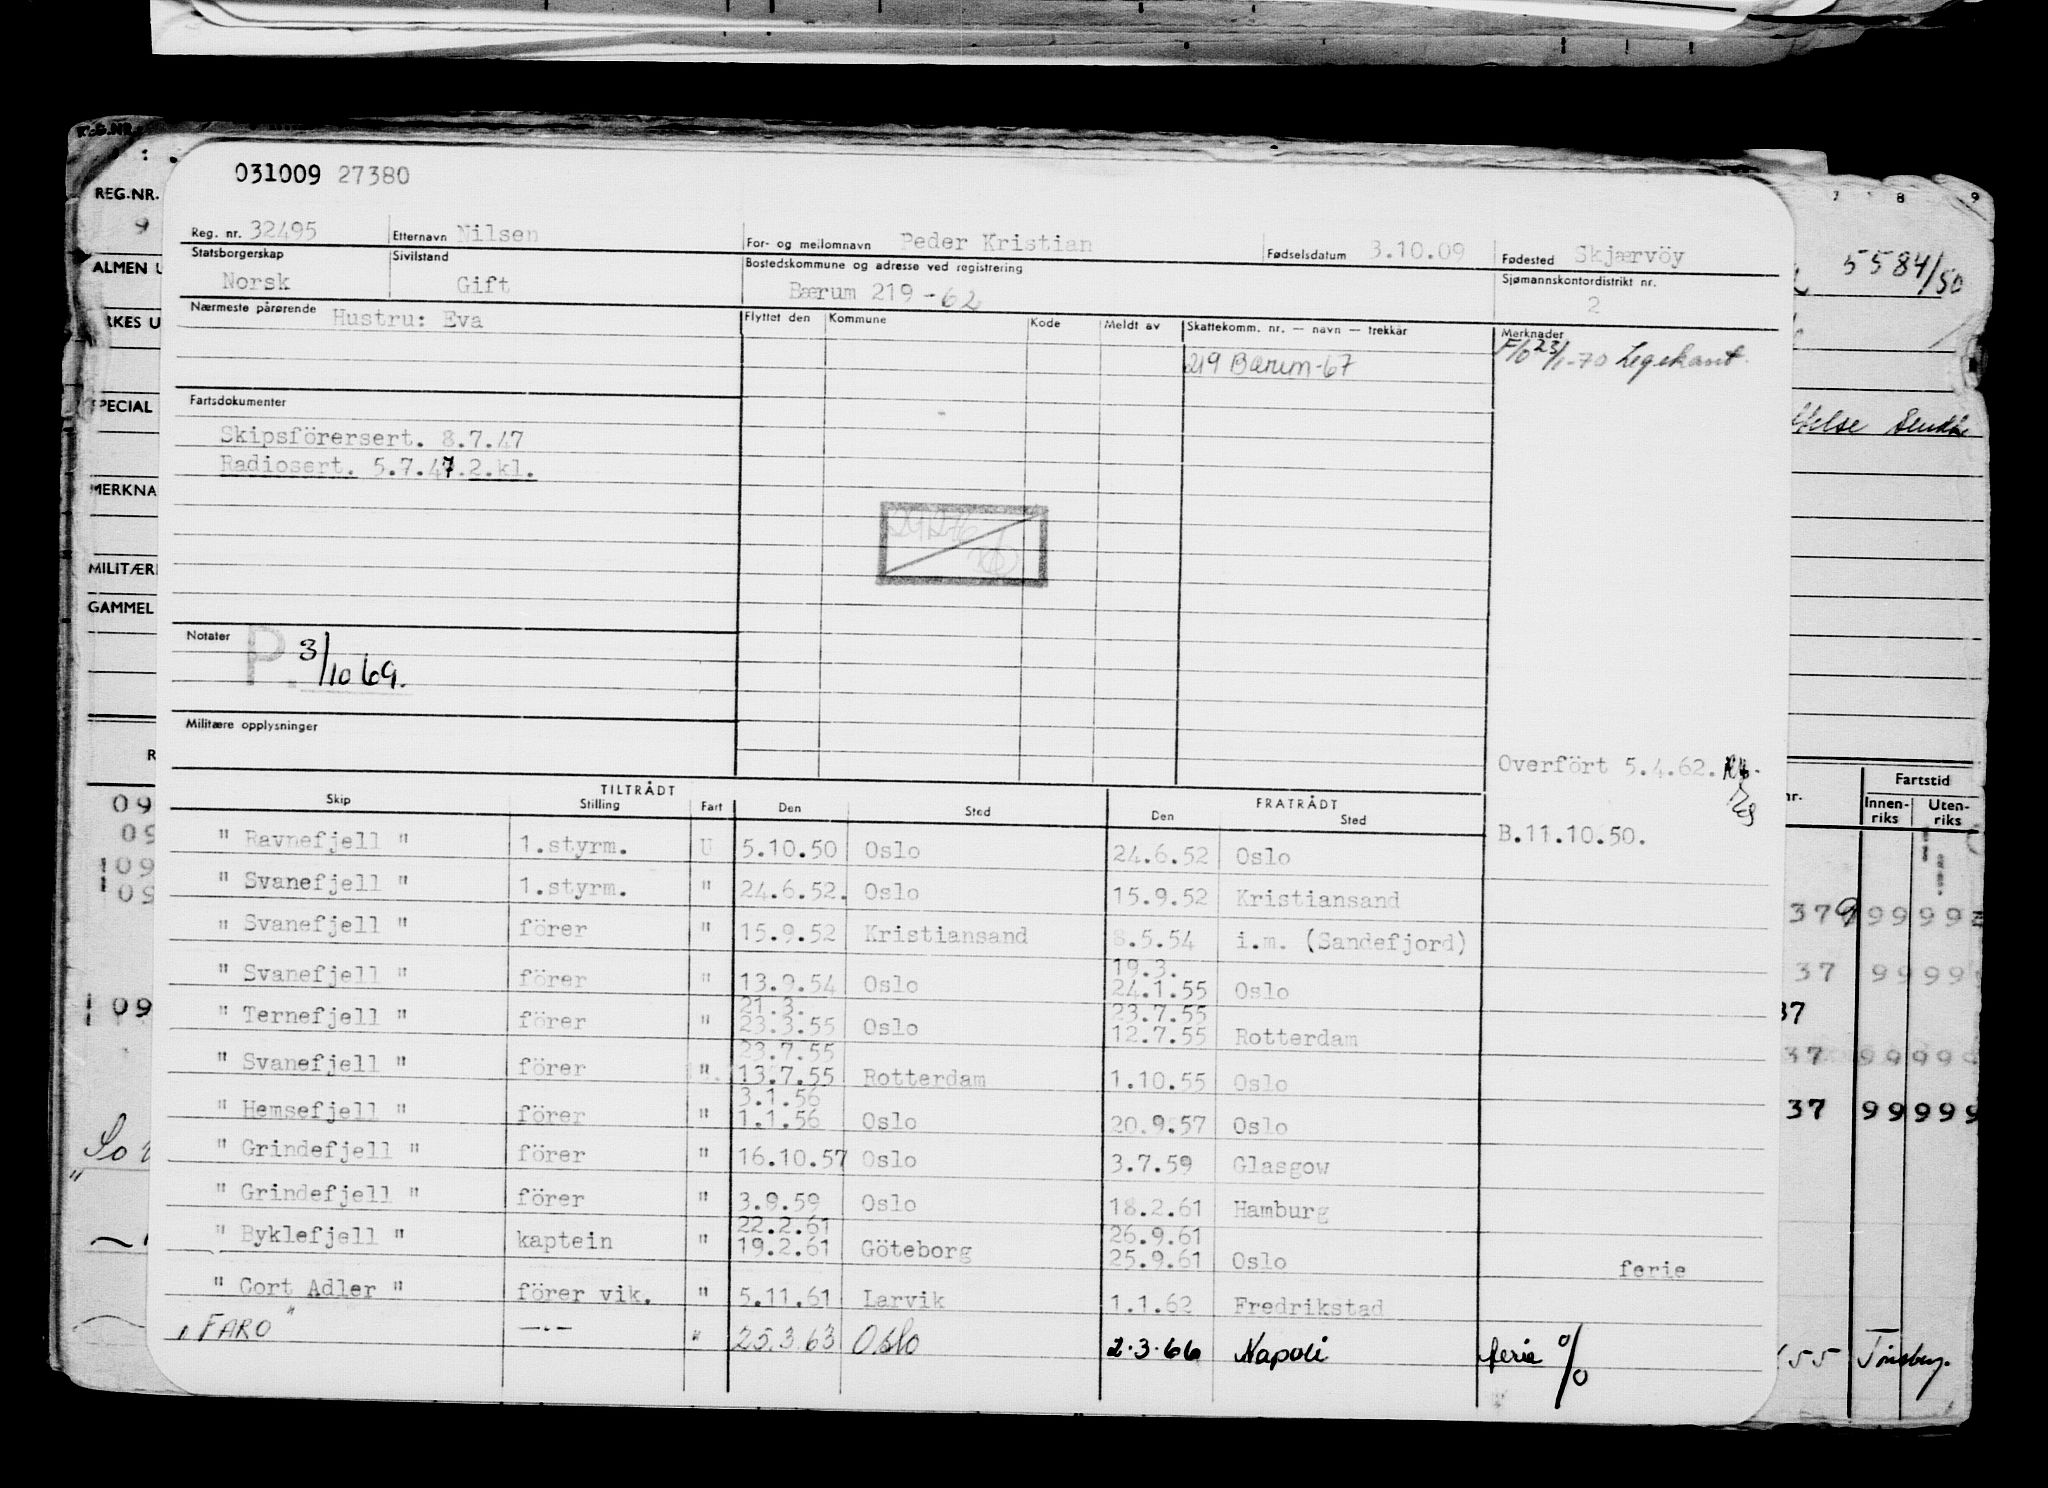 REG.NR.
031009 27380
7 8 9
9
Reg. nr. 32495 Etternavn Nilsen For- og mellomnavn Peder Kristian Fødselsdatum 3.10.09 Fødested Skjærvöy
5584/50
ALMEN U
Statsborgerskap Norsk Sivilstand Gift Bostedskommune og adresse ved registrering Bærum 219 -62 Sjømannskontordistrikt nr. 2
RKES U
Nærmeste pårørende Hustru: Eva Flyttet den Kommune Kode Meldt av Skattekomm. nr. — navn — trekkår Merknader
219 Bærum-67 F/o 23/1-70 Legekont.
PECIAL
Fartsdokumenter
Skipsförersert. 8.7.47
Radiosert. 5.7.47.2.kl.
MERKNA
MILITÆRE
GAMMEL
Notater P. 3/10 69.
Militære opplysninger
Overfört 5.4.62.
R
TILTRÅDT FRATRÅDT
Skip Stilling Fart Den Sted Den Sted
nr. Fartstid
Innen-riks Uten-riks
B.11.10.50.
" Ravnefjell " 1.styrm. U 5.10.50 Oslo 24.6.52 Oslo
" Svanefjell " 1.styrm. " 24.6.52. Oslo 15.9.52 Kristiansand
" Svanefjell " förer " 15.9.52 Kristiansand 8.5.54 i.m. (Sandefjord)
19.3.
" Svanefjell " förer " 13.9.54 Oslo 24.1.55 Oslo
21.3. 23.7.55
" Ternefjell " förer " 23.3.55 Oslo 12.7.55 Rotterdam
23.7.55
" Svanefjell " förer " 13.7.55 Rotterdam 1.10.55 Oslo
3.1.56
" Hemsefjell " förer " 1.1.56 Oslo 20.9.57 Oslo
" Grindefjell " förer " 16.10.57 Oslo 3.7.59 Glasgow
" Grindefjell " förer " 3.9.59 Oslo 18.2.61 Hamburg
22.2.61 26.9.61
" Byklefjell " kaptein " 19.2.61 Göteborg 25.9.61 Oslo ferie
" Cort Adler " förer vik. " 5.11.61 Larvik 1.1.62 Fredrikstad
" FARO " —.— " 25.3.63 Oslo 2.3.66 Napoli ferie o/o
55 Tønsberg.